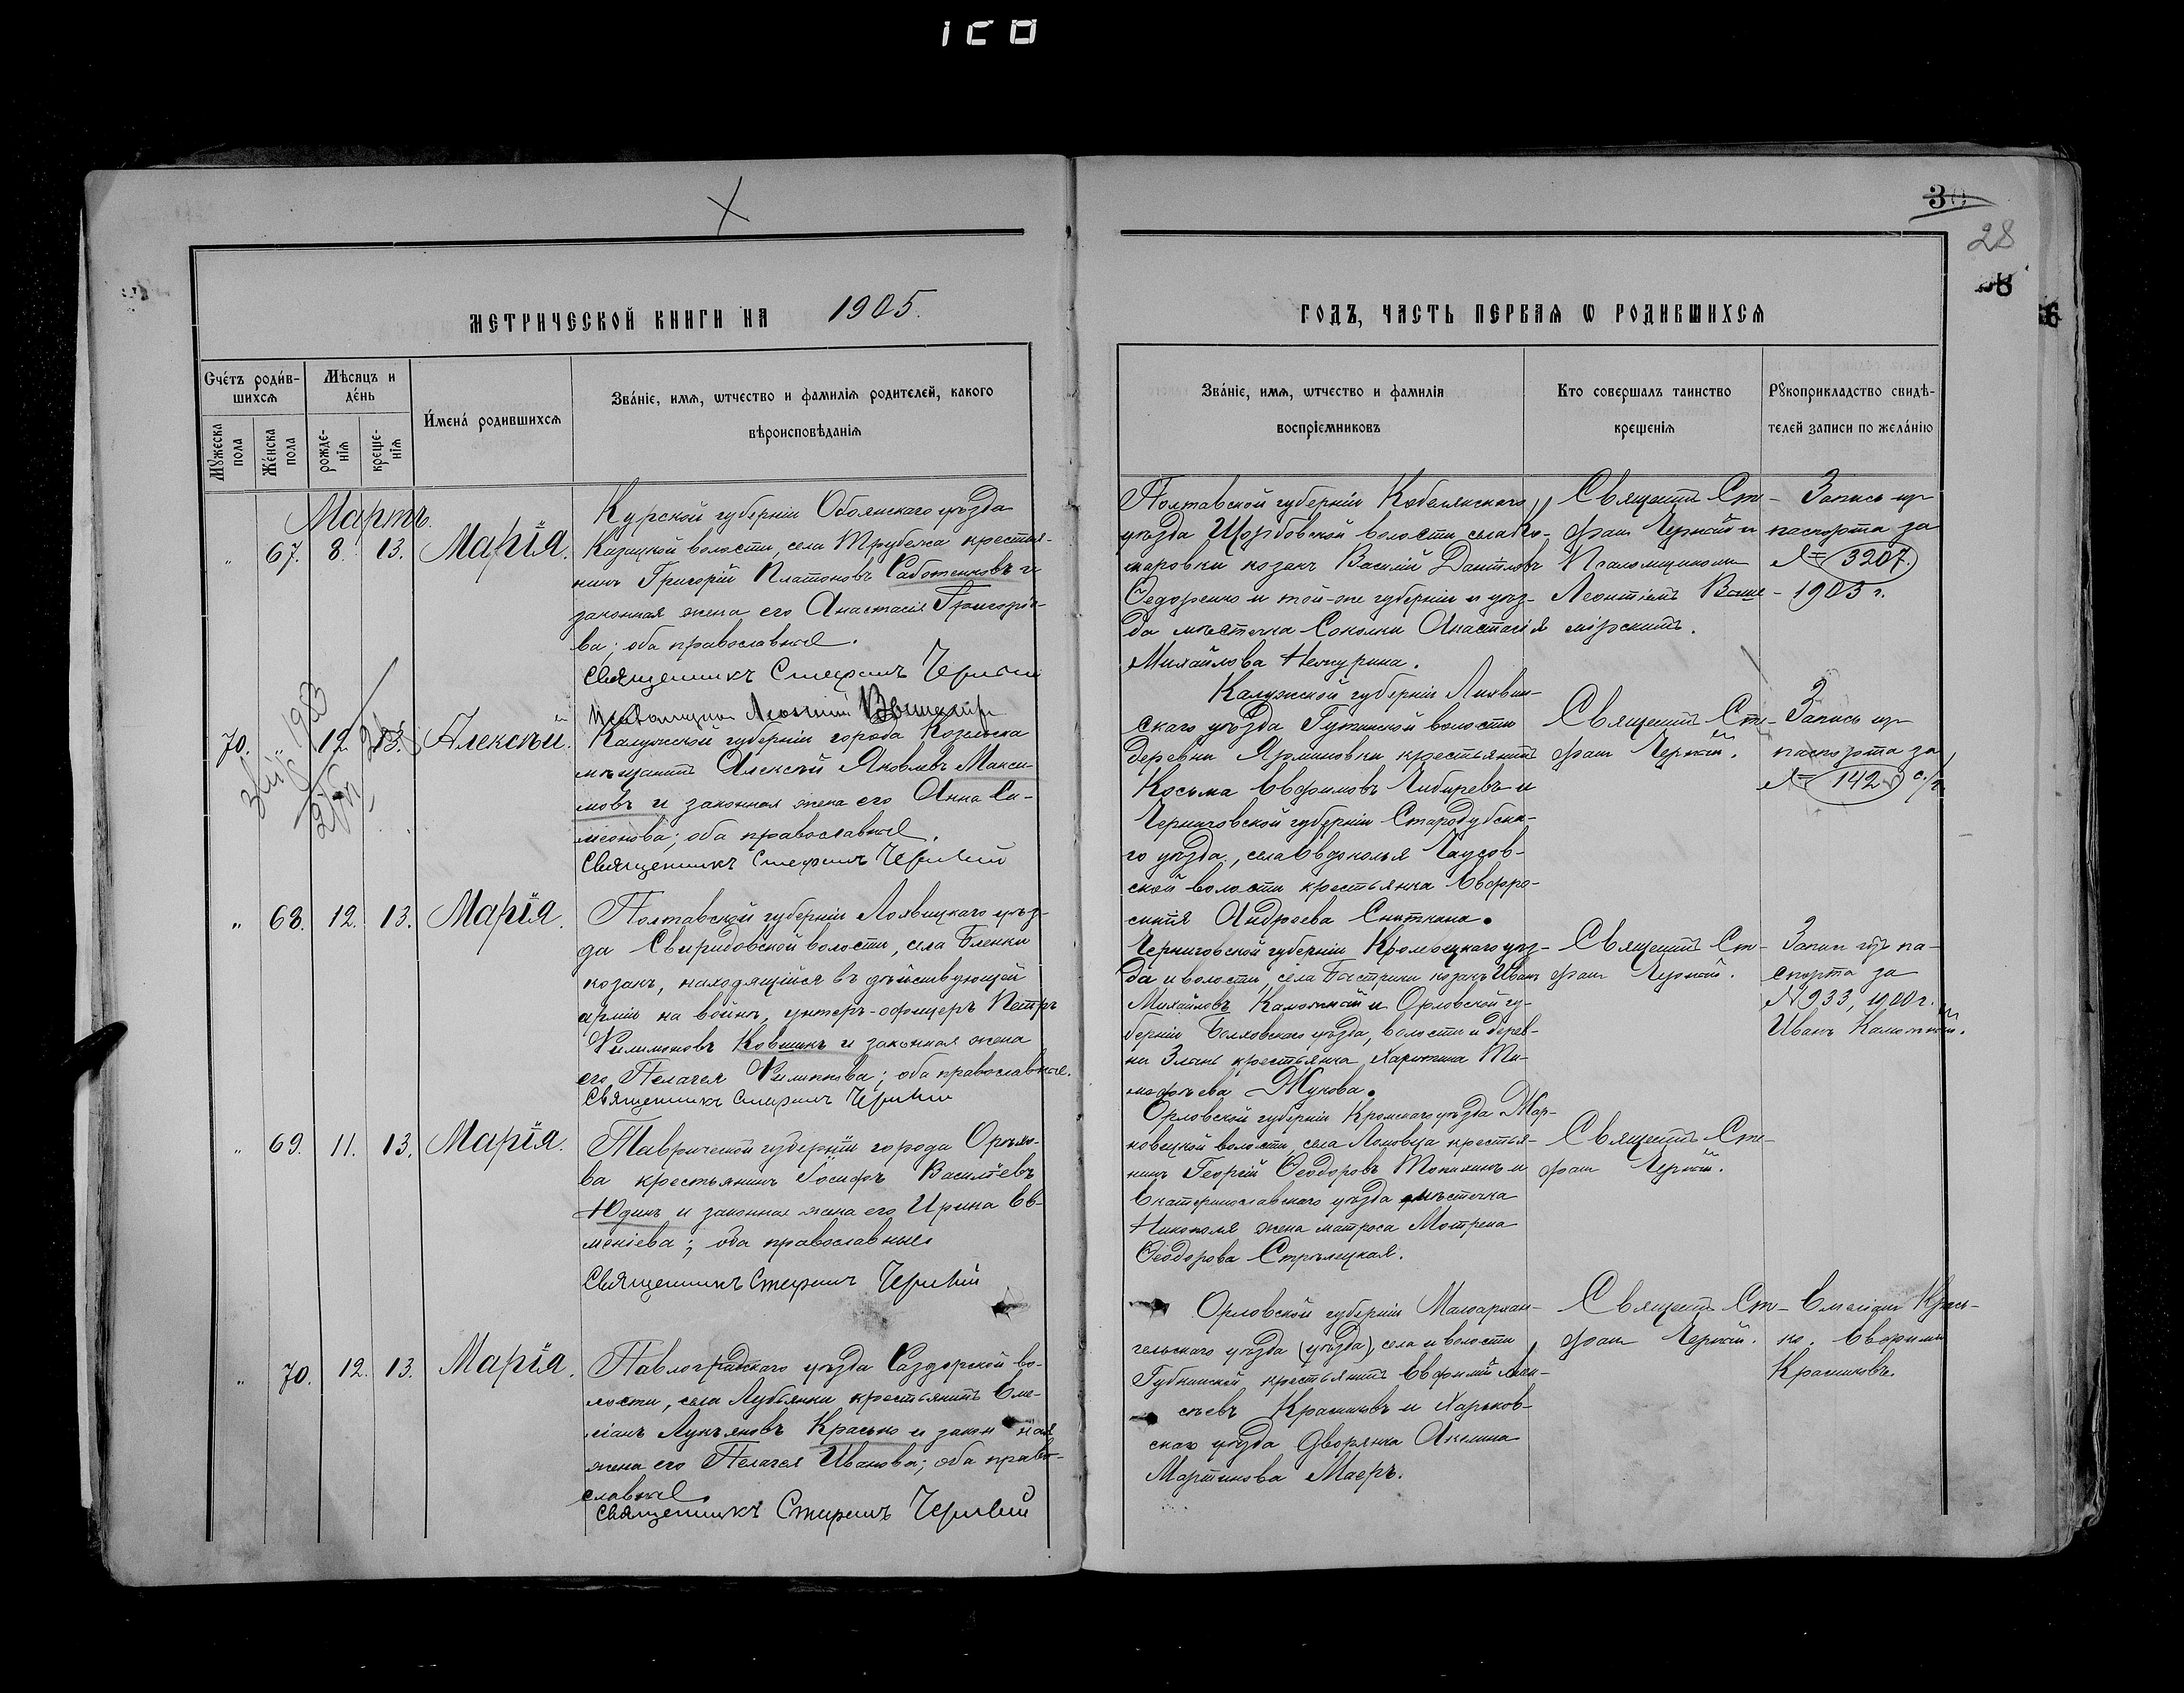 120
30
28
МЕТРИЧЕСКОЙ КНИГИ НА 1905.
ГОДЪ, ЧАСТЬ ПЕРВАЯ Ѡ РОДИВШИХСЯ
Счéтъ роди́в-
шихся
Мꙋжеска пола
Жéнска пола
Мѣсяцъ и
дéнь
рожде-
нія
креще-
нія
И́мена́ родившихся
Звáніе, имя, ѿтчество и фамилія родителей, какого
вѣроисповѣданія
Звáніе, имя, ѿтчество и фамилія
воспріемниковъ
Кто совершалъ таинство
крещенія
Рꙋкоприкладство свидѣ-
телей записи по желáнію
Мартъ.
" 67. 8. 13. Марія.
Курской губерніи Обоянскаго уѣзда
Казацкой волости, села Трубежа крестья-
нинъ Григорій Платоновъ Саботенковъ и
законная жена его Анастасія Григорье-
ва; оба православные.
Священникъ Стефанъ Черный
Псаломщикъ Леонтій
Полтавской губерніи Кобелякскаго
уѣзда волости села Ко-
маровки козакъ Василій Даніиловъ
Ѳедоренко и той-же губерніи и уѣз-
да мѣстечка Соколки Анастасія
Михайлова
Священ. Сте-
фанъ Черный и
Псаломщикомъ
Леонтіемъ Выше-
мірскимъ.
Запись изъ
паспорта за
№ 3207.
1903 г.
70. " 12. 13. Алексѣй.
Калужской губерніи города Козельска
мѣщанинъ Алексѣй Яковлевъ Макси-
мовъ и законная жена его Анна Си-
меонова; оба православные.
Священникъ Стефанъ Черный
Калужской губерніи Лихвин-
скаго уѣзда волости
деревни крестьянинъ
Косьма Евфимовъ и
Черниговской губерніи Стародубска-
го уѣзда, села
ской волости крестьянка Евфро-
синія Андреева Сниткина.
Священ. Сте-
фанъ Черный.
Запись изъ
паспорта за
№ 142
" 68. 12. 13. Марія.
Полтавской губерніи Лохвицкаго уѣз-
да Свиридовской волости, села
козакъ, находящійся въ дѣйствующей
арміи на войнѣ, унтеръ-офицеръ Петръ
Филимоновъ Ковшикъ и законная жена
его Пелагея Филиппова; оба православные.
Священникъ Стефанъ Черный
Черниговской губерніи Кролевецкаго уѣз-
да и волости, села Быстрики козакъ Иванъ
Михайловъ Каложный и Орловской гу-
берніи Болховскаго уѣзда, волости и дерев-
ни Злынь крестьянка Харитина Ти-
моѳеева Жукова.
Священ. Сте-
фанъ Черный.
Запись изъ па-
спорта за
№ 933, 1900 г.
Иванъ Каложный.
" 69. 11. 13. Марія.
Таврической губерніи города Орѣхо-
ва крестьянинъ Іосифъ Васильевъ
Юдинъ и законная жена его Ирина Ев-
меніева; оба православные
Священникъ Стефанъ Черный
Орловской губерніи Кромскаго уѣзда
волости, села Ломовца крестья-
нинъ Георгій Ѳеодоровъ и
Екатеринославскаго уѣзда мѣстечка
Никополя жена матроса Мотрена
Ѳеодорова Стрѣлецкая.
Священ. Сте-
фанъ Черный.
" 70. 12. 13. Марія.
Павлоградскаго уѣзда во-
лости, села крестьянинъ Еме-
ліанъ Лукьяновъ Красько и законная
жена его Пелагея Иванова; оба право-
славные.
Священникъ Стефанъ Черный
Орловской губерніи Малоархан-
гельскаго уѣзда (уѣзда) села и волости
Губкинской крестьянинъ Евфимій Алек-
сѣевъ Красниковъ и Харьков-
скаго уѣзда дворянка Акилина
Мартинова Маеръ.
Священ. Сте-
фанъ Черный.
Емеліанъ Крась-
ко. Евфимій
Красниковъ.